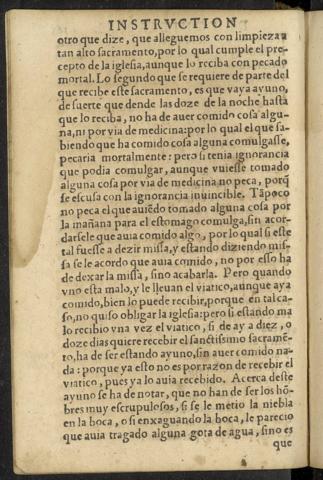 INSTRVCTION
otro que dize, que alleguemos con limpieza a
tan alto sacramento, por lo qual cumple el pre-
cepto de la iglesia, aunque lo rciba con pecado
mortal. Lo segundo que se requiere de parte del
que recibe este sacramento, es que vaya ayuno,
de suerte que dende las doze de la noche hasta
que lo reciba, no ha de auer comido cosa algu-
na, ni por via de medicina: por lo qual el que sa-
biendo que ha comido cosa alguna comulgasse,
pecaria mortalmente: pero si tenia ignorancia
que podia comulgar, aunque vuiesse tomado
alguna cosa por via de medicina no peca, porq̃
se escusa con la ignorancia inuincible. Tãpoco
no peca el que auiẽdo tomado alguna cosa por
la mañana para el estomago comulga, sin acor-
darsele que auia comido algo, por lo qual si este
tal fuesse a dezir missa, y estando diziendo mis-
sa se le acordo que auia comido, no por esso ha
de dexar la missa, sino acabarla. Pero quando
vno esta malo, y le lleuan el viatico, aunque aya
comido, bien lo puede recibir, porque en tal ca-
so, no quiso obligar la iglesia: pero si estando ma
lo recibio vna vez el viatico, si de ay a diez, o
doze dias quiere recebir el sanctissimo sacramẽ-
to, ha de ser estando ayuno, sin auer comido na-
da: porque ya esto no es por razon de recebir el
viatico, pues ya lo auia recebido. Acerca deste
ayuno se ha de notar, que no han de ser los hõ-
bres muy escrupulosos, si se le metio la niebla
en la boca, o si enxaguando la boca, le parecio
que auia tragado alguna gota de agua, sino es
que